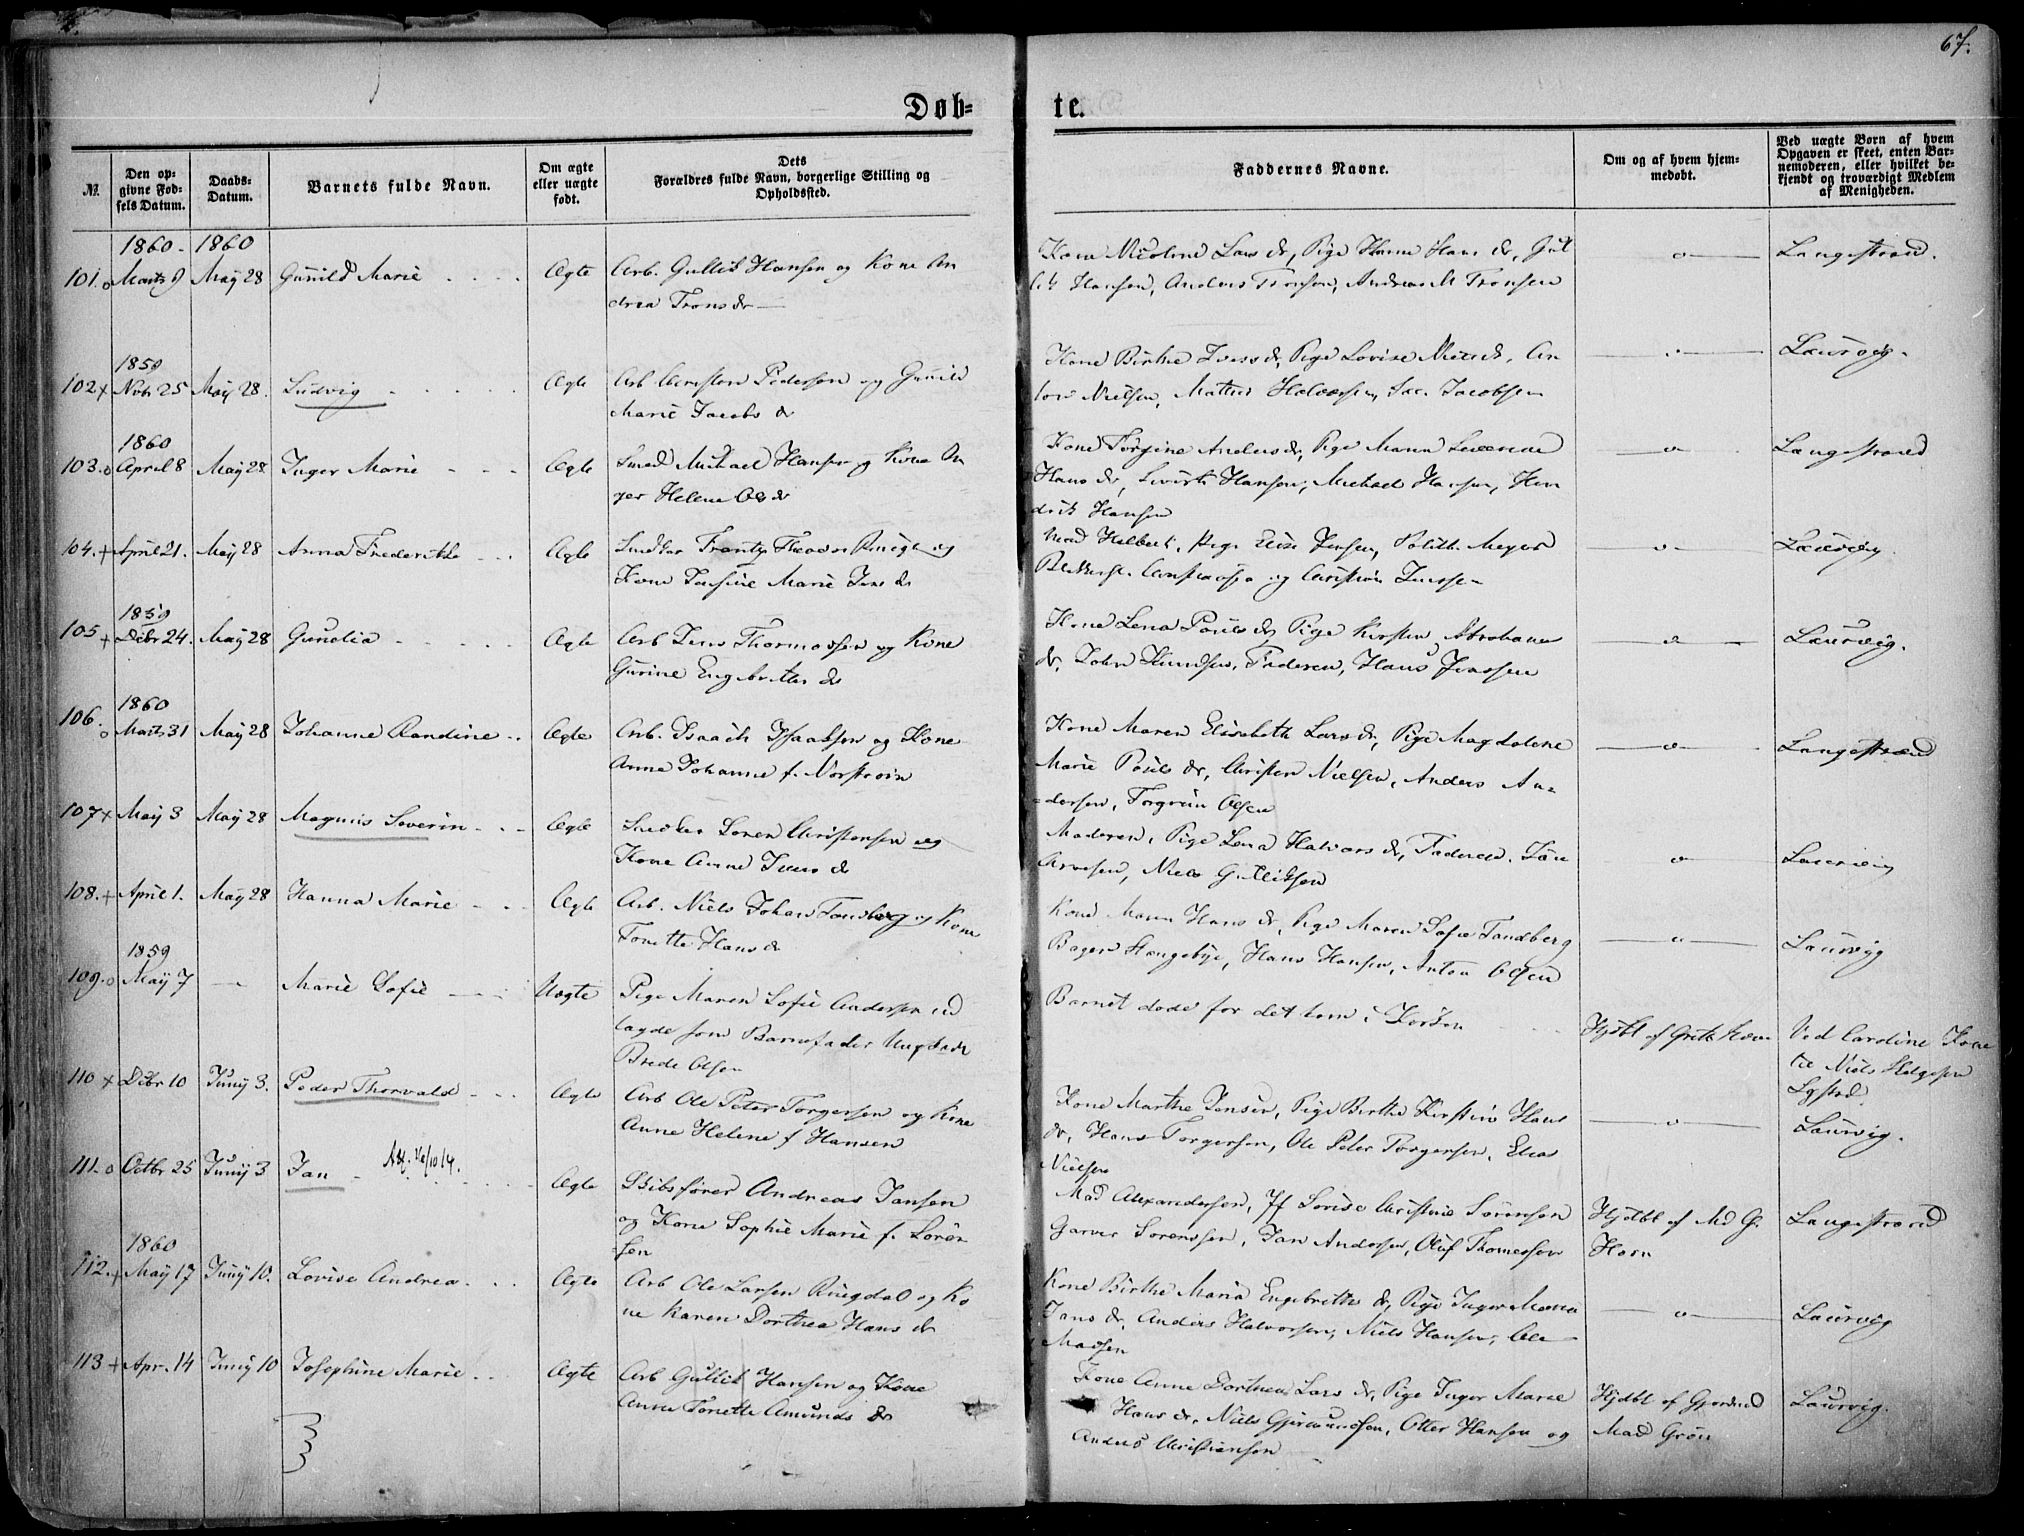 67.
Døb-
te.
№
Den op-
givne Fød-
sels Datum.
Daabs-
Datum.
Barnets fulde Navn.
Om ægte
eller uægte
født.
Dets
Forældres fulde Navn, borgerlige Stilling og
Opholdssted.
Faddernes Navne.
Om og af hvem hjem-
medøbt.
Ved uægte Børn af hvem
Opgaven er skeet, enten Bar-
nemoderen, eller hvilket be-
kjendt og troværdigt Medlem
af Menigheden.
1860 - 1860
101. o Marts 9 May 28 Gunild Marie Ægte Arb. Gullik Hansen og Kone An
drea Trons dr
Kone Nicoline Lars dr, Pige Hanne Hans dr, Gul
lik Hansen, Anders Tronsen, Andreas M Tronsen
o
Langestrand.
1859
102 x Nvbr 25 May 28. Ludvig Ægte Arb Christen Pedersen og Gunild
Marie Jacobs dr
Kone Birthe Ivers dr, Pige Lovise Niels dr, An
Nielsen, Mathis Halvorsen, Jacobsen
Laurvig.
1860
103. o April 8 May 28 Inger Marie Ægte Smed Michael Hansen og Kone In
ger Helene Ols dr
Kone Torgine Anders dr, Pige Maren
Hans dr, Hansen, Michael Hansen, Hen
drik Hansen
o
Langestrand
104. + April 21. May 28 Anna Frederikke Ægte Snedker Frantz Theodor og
Kone Josfine Marie Jens dr
Mad Helbert, Pige Elise Jensen, Politb. Meyer
og Christian Jensen
o
Laurvig
1859
105 + Decbr 24. May 28 Gunelia Ægte Arb Jens Thormodsen og Kone
Gurine Engebrettes dr
Kone Lena Pouls dr, Pige Kirsten Abrahams
dr, John Knudsen, Faderen, Hans Jensen
o
Laurvig.
1860
106. o Marts 31 May 28 Johanne Randine Ægte Arb. Isaach Isaachsen og Kone
Anna Johanne f. Norstrøm
Kone Maren Elisabeth Lars dr, Pige Magdalene
Marie Pouls dr, Christen Nielsen, Anders An-
-dersen, Torgrim Olsen
o
Langestrand
107 x May 3 May 28 Magnus Severin Ægte Snedker Søren Christensen og
Kone Anne Ivers dr
Moderen, Pige Lena Halvors dr, Faderen,
Arvesen, Niels Gulliksen
o
Laurvig
108. + April 1. May 28 Hanna Marie Ægte Arb. Niels Johan Tandberg og Kone
Tonette Hans dr
Kone Maren Hans dr, Pige Maren Sofie Tandberg
Bager Hangebye, Hans Hansen, Anton Olsen
o
Laurvig
1859
109. o May 7 Marie Sofie Uægte Pige Maren Sofie Andersen ud
lagde som Barnefader Ungkarl
Brede Olsen
Barnet døde før det kom i Kirken
Hjdbt af Grethe
Ved Caroline Kone
til Niels Helgesen
110 x Decbr 10 Juny 3. Peder Thorvald Ægte Arb Ole Peter Torgersen og Kone
Anne Helene f Hansen
Kone Marthe Jensen, Pige Birthe Kirstine Hans
dr, Hans Torgersen, Ole Peter Torgersen, Elias
Nielsen
o
Laurvig.
111. o Octbr 25 Juny 3 Jan Att. 16/10 14. Ægte Skibsfører Andreas Jansen
og Kone Sophie Marie f. Søren
sen
Mad Alexandersen, Jf Lovise Christine Sørensen
Garver Sørensen, Jan Andersen, Oluf Thomessen
Hjdbt af Md G.
Horn
Langestrand
1860
112. + May 17 Juny 10. Lovise Andrea Ægte Arb Ole Larsen Ringdal og Ko
ne Karen Dorthea Hans dr
Kone Birthe Maria Engebreths dr, Pige Inger Maria
Jans dr, Anders Halvorsen, Niels Hansen, Ole
Madsen
o
Laurvig
113 + Apr. 14 Juny 10 Josephine Marie Ægte Arb Gullik Hansen og Kone
Anne Tonette Amunds dr
Kone Anne Dorthea Lars dr, Pige Inger Marie
Hans dr, Niels Gjermundsen, Otter Hansen og
Anders Christiansen
Hjdbt af Gjordmd
Mad Grøn
Laurvig.